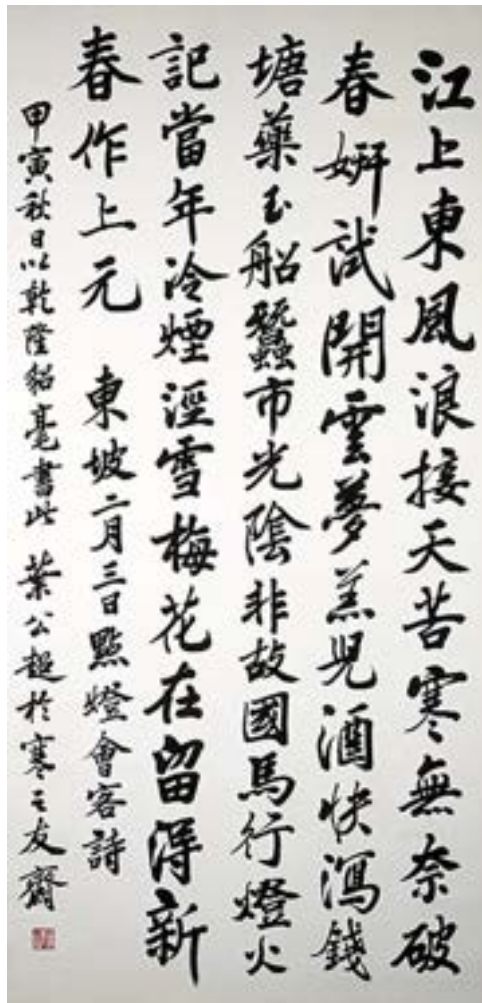 江上東風浪接天苦寒無奈破
春妍試開雲夢羔兒酒快瀉錢
塘藥玉船蠶市光陰非故國馬行燈火
記當年冷煙溼雪梅花在留得新
春作上元 東坡二月三日點燈會客詩
甲寅秋日以乾隆貂毫書此 葉公超於寒之友齋